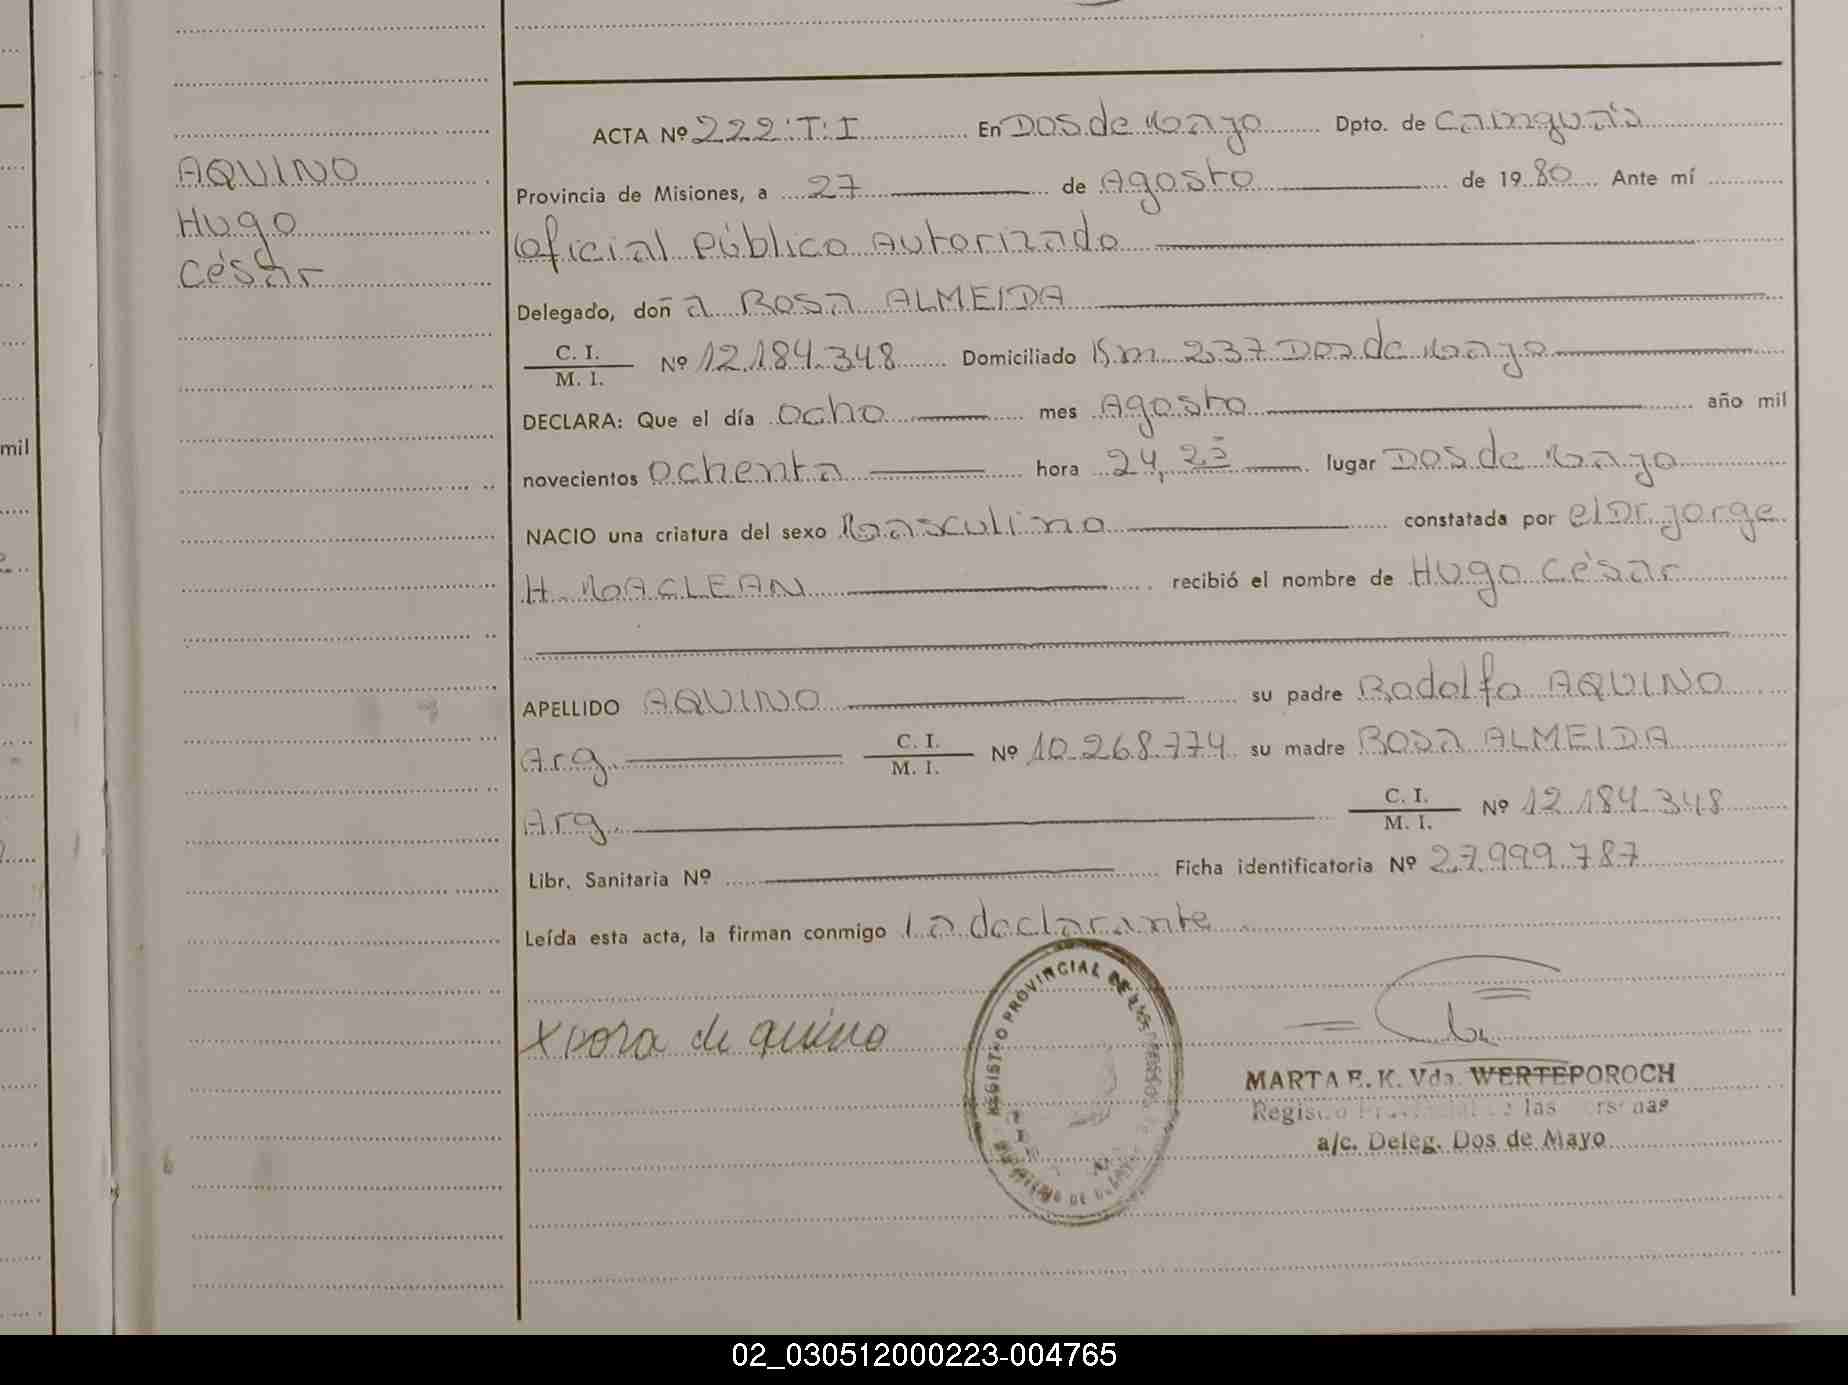 ACTA Nº 222:T:I En Dos de Mayo Dpto. de Cainguás
AQUINO
Hugo
César
Provincia de Misiones, a 27 de Agosto de 1980 Ante mí
Oficial Público Autorizado
Delegado, doña Rosa ALMEIDA
C. I.
M. I. Nº 12.184.348 Domiciliado Km 237 Dos de Mayo
DECLARA: Que el día ocho mes Agosto año mil
novecientos ochenta hora 24,25 lugar Dos de Mayo
NACIO una criatura del sexo Masculino constatada por el Dr. Jorge
H. MACLEAN recibió el nombre de Hugo César
APELLIDO AQUINO su padre Rodolfo AQUINO
Arg. C. I.
M. I. Nº 10.268.774 su madre Rosa ALMEIDA
Arg. C. I.
M. I. Nº 12.184.348
Libr. Sanitaria Nº Ficha identificatoria Nº 27.999.787
Leída esta acta, la firman conmigo la declarante
REGISTRO PROVINCIAL DE LAS
de quino
MARTA E. K. Vda. WERTEPOROCH
Registro Provincial de las Personas
a/c. Deleg. Dos de Mayo
mil
02_030512000223-004765